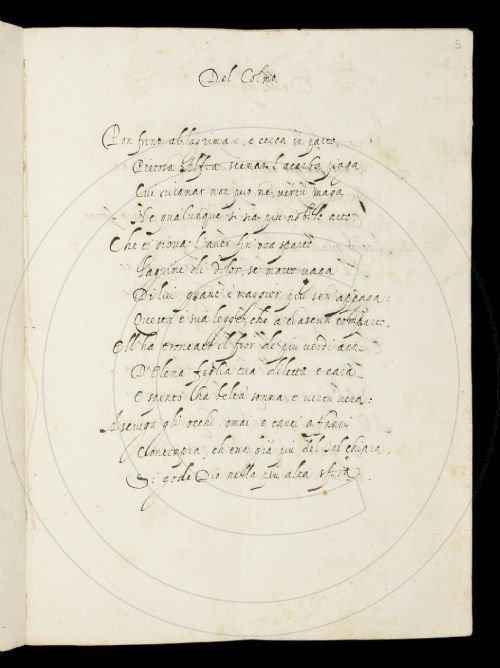 5
Del Colmo.
Pon freno al lagrimar, e cerca in parte,
Pietosa scemar l'acerba piaga,
Cui risanar non può ne vertù maga
Ne qualunque si sia più nobil arte.
Che ti giova l'aver fin ora sparte
Lagrime di dolor, se morte vaga
Di lui, quant'è maggior, più s'en appaga:
Questa è sua legge, che a ciascun comparte.
Ell'ha troncato il fior de più verdi anni
D'Elena figlia tua diletta e cara
E spinto l'ha beltà somma, e vertù vera:
Asciuga gli occhi omai, e tanti affanni
Contempra, ch'ella già più del Sol chiara,
Si gode Dio nella più alta sfera.